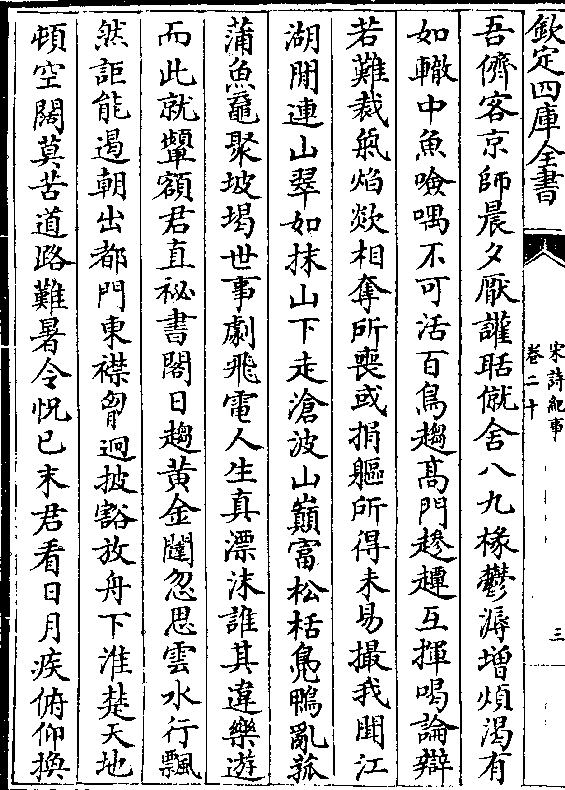 欽定四庫全書
宋詩紀事
卷二十
三
吾儕客京師晨夕厭讙聒僦舍八九椽鬱溽增煩渴有
如轍中魚噞喁不可活百鳥趨高門趁趯互揮喝論辯
若難裁氣焰欻相奪所喪或捐軀所得未易撮我聞江
湖閒連山翠如抹山下走滄波山巔富松栝鳧鴨亂菰
蒲魚鼈聚坡堨世事劇飛電人生真漂沫誰其違樂遊
而此就顰額君直祕書閣日趨黄金闥忽思雲水行飄
然詎能遏朝出都門東襟胷迥披豁放舟下淮楚天地
頓空闊莫苦道路難暑令怳已末君看日月疾俯仰換